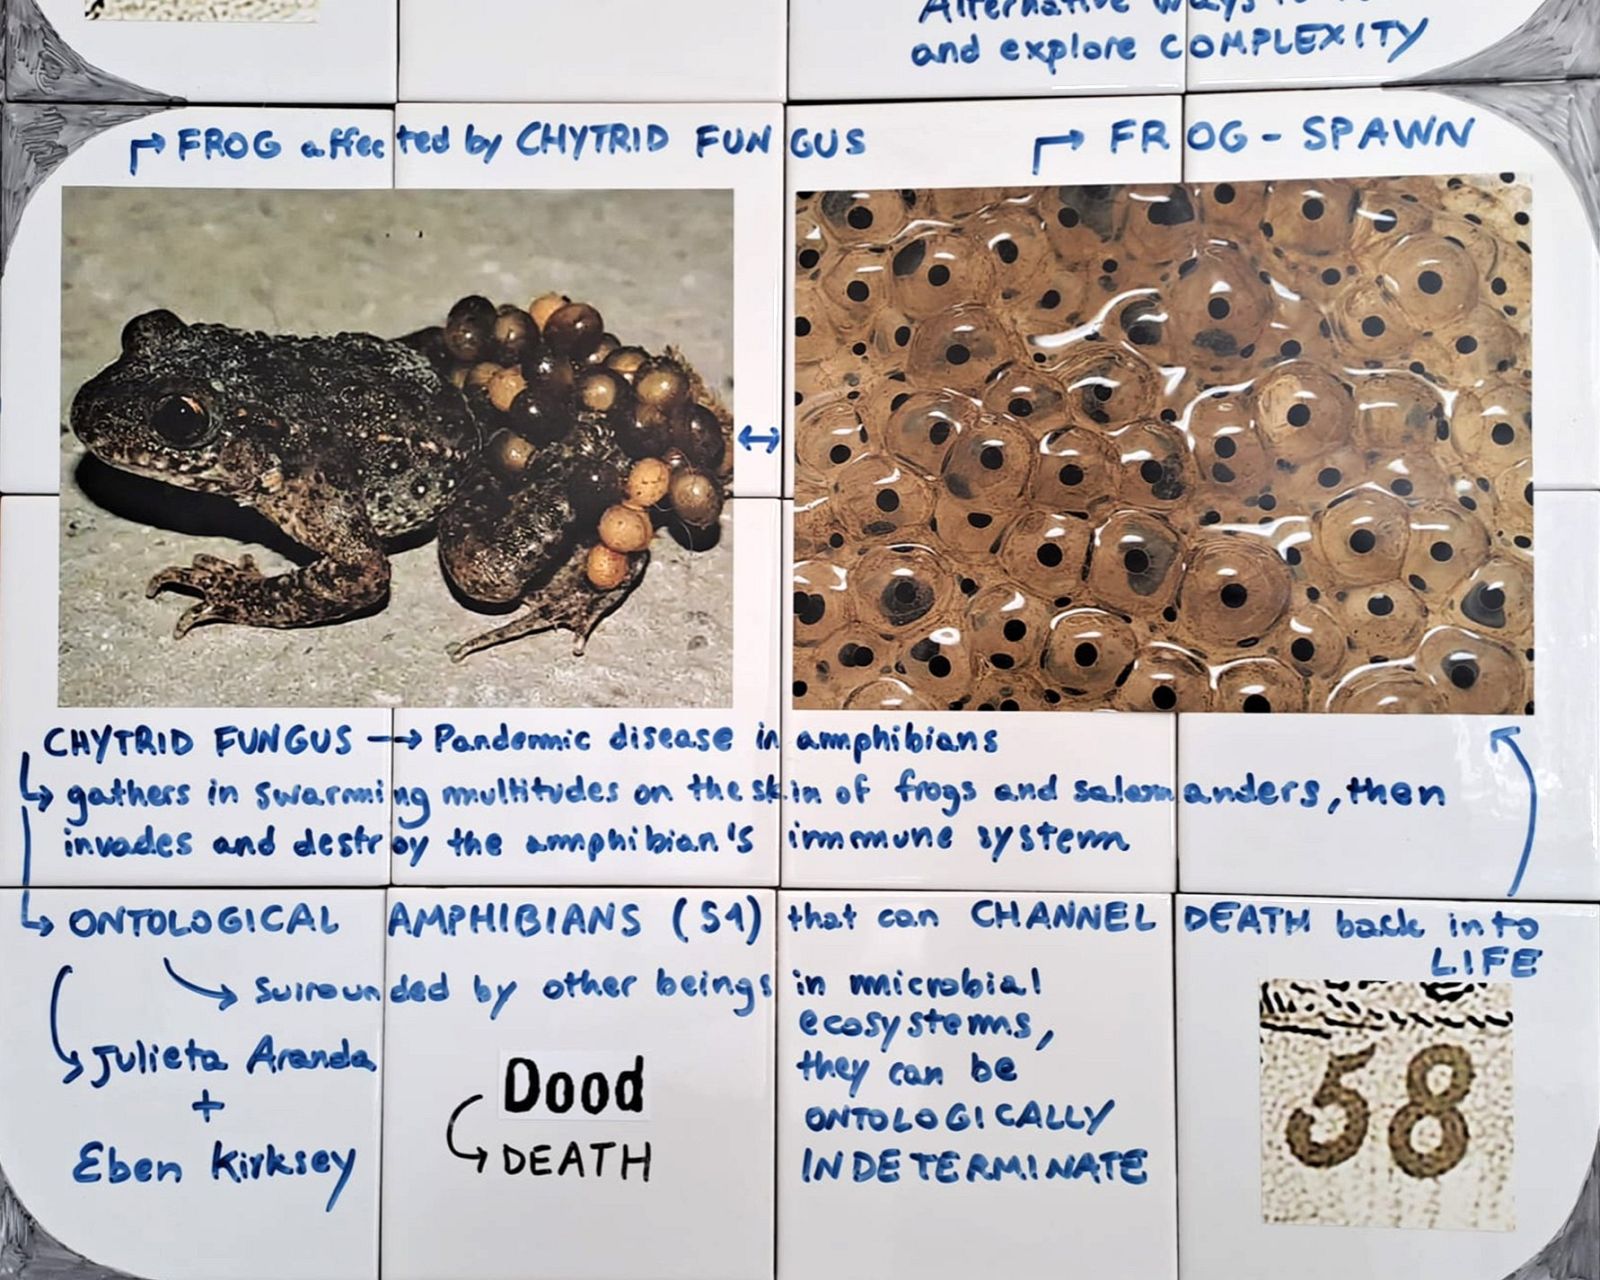 Alternative ways to
and explore COMPLEXITY
FROG affected by CHYTRID FUNGUS
FROG - SPAWN
CHYTRID FUNGUS → Pandemic disease in amphibians
gathers in swarming multitudes on the skin of frogs and salamanders, then
invades and destroy the amphibian's immune system
ONTOLOGICAL AMPHIBIANS (S1) that can CHANNEL DEATH back into
LIFE
surrounded by other beings in microbial
ecosystems,
they can be
ONTOLOGICALLY
INDETERMINATE
Julieta Aranda
+
Eben Kirksey
Dood
DEATH
58